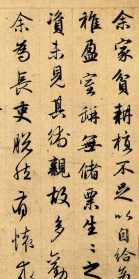 余家貧耕植不足以自給幼
稚盈室缾無儲粟生生之
資未見其術親故多勸
余為長吏脫然有懷求